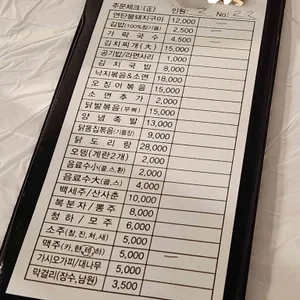 주문체크:(正) 인원: 2 No: 22
연탄불돼지구이 12,000
김밥(100%참기름) 2,500
가락국수 4,500
김치찌개(大) 15,000
공기밥/라면사리 1,000
김치국밥 8,000
낙지볶음&소면 18,000
오징어볶음 15,000
소면추가 2,000
닭발볶음(무뼈) 15,000
양념족발 13,000
닭똥집볶음(기름장) 9,000
닭도리탕 28,000
오뎅(계란2개) 2,000
음료수小(콜,스,환) 2,000
음료수大(콜,스) 4,000
백세주/산사춘 10,000
복분자/통주 8,000
청하/모주 6,000
소주(참,진,처,새) 5,000
맥주(카,한,테,하) 5,000
가시오가피/대나무 5,000
막걸리(장수,남원) 3,500